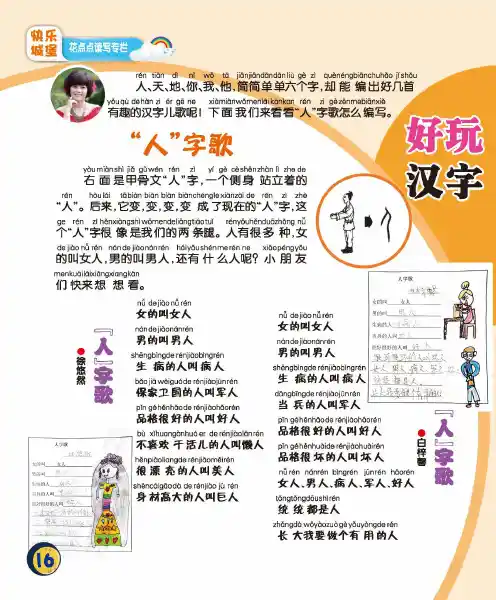 快乐
城堡
花点点读写专栏
rén tiān dì nǐ wǒ tā jiǎnjiǎndāndānliù gè zì quènéngbiānchūhǎo jǐshǒu
人、天、地、你、我、他，简简单单六个字，却能编出好几首
yǒuqù dehàn zì ér gē ne xiàmiànwǒmenláikànkan rén zì gēzěnmebiānxiě
有趣的汉字儿歌呢！下面我们来看看“人”字歌怎么编写。
好玩
汉字
“人”字歌
yòu miànshì jiǎ gǔwén rén zì yí gè cèshēnzhàn lì zhe de
右面是甲骨文“人”字，一个侧身站立着的
rén hòu lái tābiàn biàn biàn biànchéngle xiànzài de rén zì zhè
人”。后来，它变，变，变，变成了现在的“人”字，这
ge rén zì hěnxiàngshì wǒmendeliǎngtiáotuǐ rényǒuhěnduōzhǒng nǚ
个“人”字很像是我们的两条腿。人有很多种，女
de jiào nǚ rén nán de jiàonánrén háiyǒushénmerén ne xiǎopéngyǒu
的叫女人，男的叫男人，还有什么人呢？小朋友
menkuàiláixiǎngxiangkàn
们快来想想看。
『人』字歌
●徐悠然
nǚ de jiào nǚ rén
女的叫女人
nán de jiàonánrén
男的叫男人
shēngbìngde rénjiàobìngrén
生病的人叫病人
bǎo jiā wèiguóde rénjiàojūnrén
保家卫国的人叫军人
pǐn géhěnhǎode rénjiàohǎorén
品格很好的人叫好人
bù xǐhuangànhuó er de rénjiàolǎnrén
不喜欢干活儿的人叫懒人
hěnpiàoliangde rénjiàoměirén
很漂亮的人叫美人
shēncáigāodà de rénjiào jù rén
身材高大的人叫巨人
nǚ de jiào nǚ rén
女的叫女人
nán de jiàonánrén
男的叫男人
shēngbìngde rénjiàobìngrén
生病的人叫病人
dāngbīngde rénjiàojūnrén
当兵的人叫军人
pǐn géhěnhǎode rénjiàohǎorén
品格很好的人叫好人
pǐn géhěnhuàide rénjiàohuàirén
品格很坏的人叫坏人
nǚ rén nánrén bìngrén jūnrén hǎorén
女人、男人、病人、军人、好人
tǒngtǒngdōushìrén
统统都是人
zhǎngdà wǒyàozuògè yǒuyòngde rén
长大我要做个有用的人
『人』字歌
●白梓馨
人字歌
人字歌
16